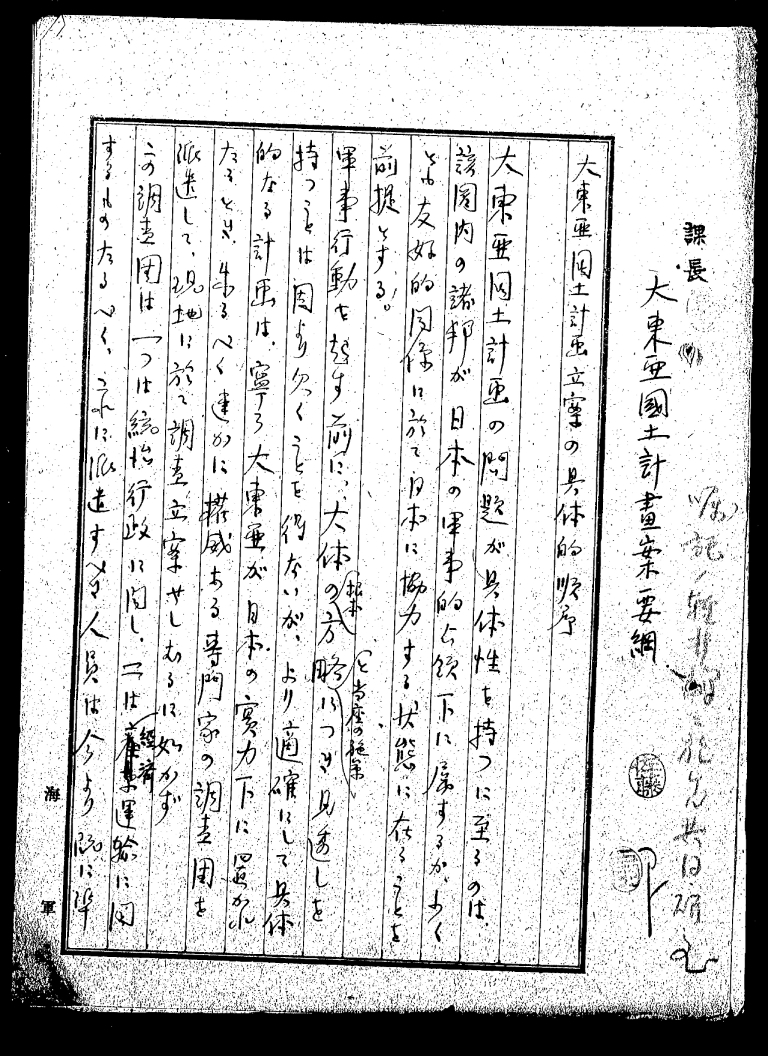 課長
大東亜國土計畫案要綱
大東亜国土計画立案の具体的順序
大東亜国土計画の問題が具体性を持つに至るのは、
該圏内の諸邦が日本の軍事的占領下に属するか、よく
友好的関係に於て日本に協力する状態に在ることを
前提とする。
軍事行動を起す前に、大体の根本方略と当座の施策につき見透しを
持つことは固より欠くことを得ないが、より適確にして具体
的なる計画は、寧ろ大東亜が日本の実力下に置かれ
たるとき、成るべく速かに権威ある専門家の調査団を
派遣して、現地に於て調査立案せしむるに如かず
この調査団は一つは統治行政に関し、二は経済運輸に関
するものたるべく、これに派遣すべき人員は今より既に準
海軍